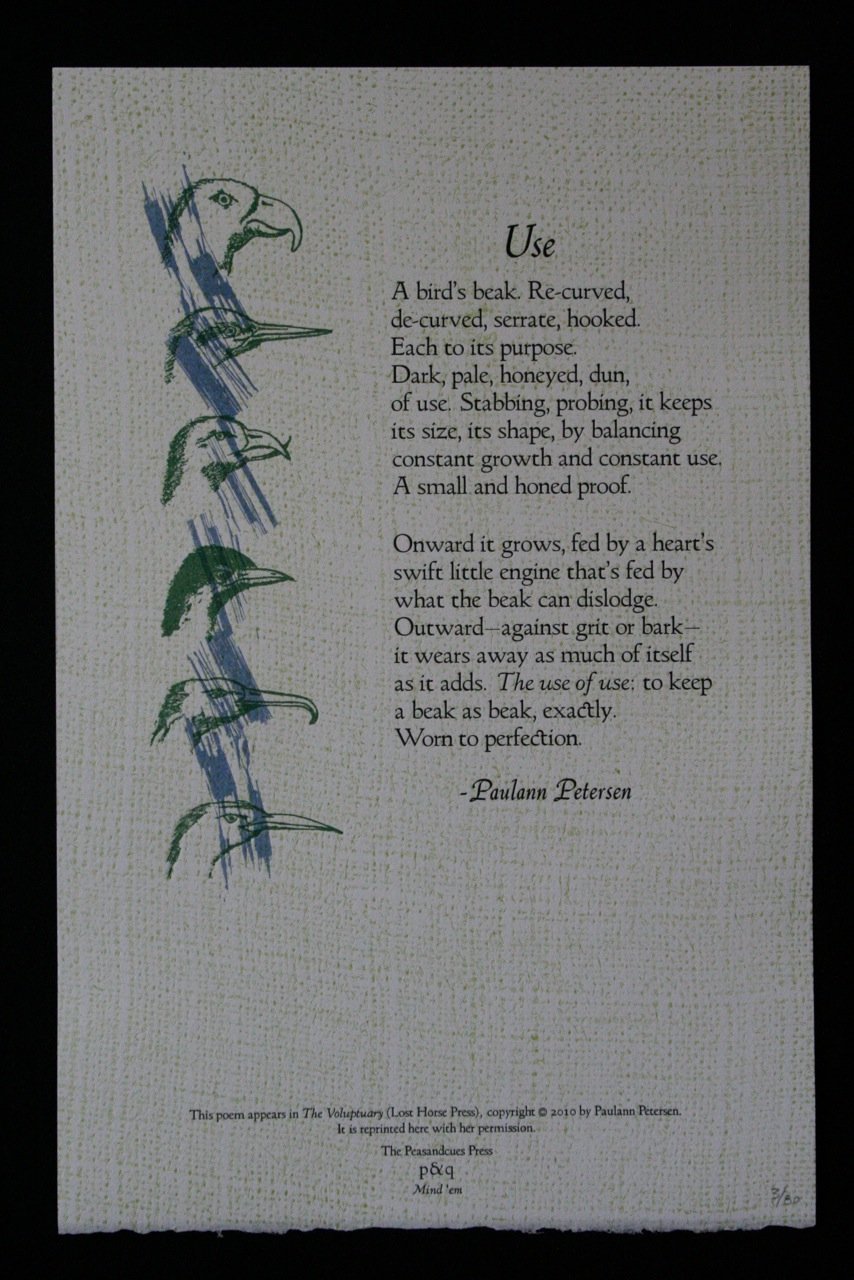 Use
A bird's beak. Re-curved,
de-curved, serrate, hooked.
Each to its purpose.
Dark, pale, honeyed, dun,
of use. Stabbing, probing, it keeps
its size, its shape, by balancing
constant growth and constant use.
A small and honed proof.
Onward it grows, fed by a heart's
swift little engine that's fed by
what the beak can dislodge.
Outward—against grit or bark—
it wears away as much of itself
as it adds. The use of use: to keep
a beak as beak, exactly.
Worn to perfection.
-Paulann Petersen
This poem appears in The Voluptuary (Lost Horse Press), copyright © 2010 by Paulann Petersen.
It is reprinted here with her permission.
The Peasandcues Press
p&q
Mind 'em